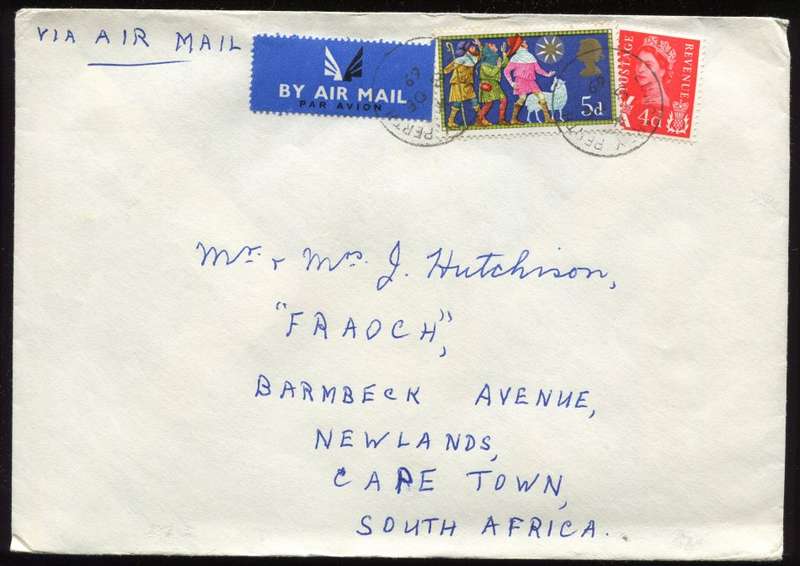 VIA AIR MAIL
BY AIR MAIL
PAR AVION
5d
POSTAGE
REVENUE
4d
69
PERTH
Mr. & Mrs J. Hutchison,
"FRAOCH",
BARMBECK AVENUE,
NEWLANDS,
CAPE TOWN,
SOUTH AFRICA.